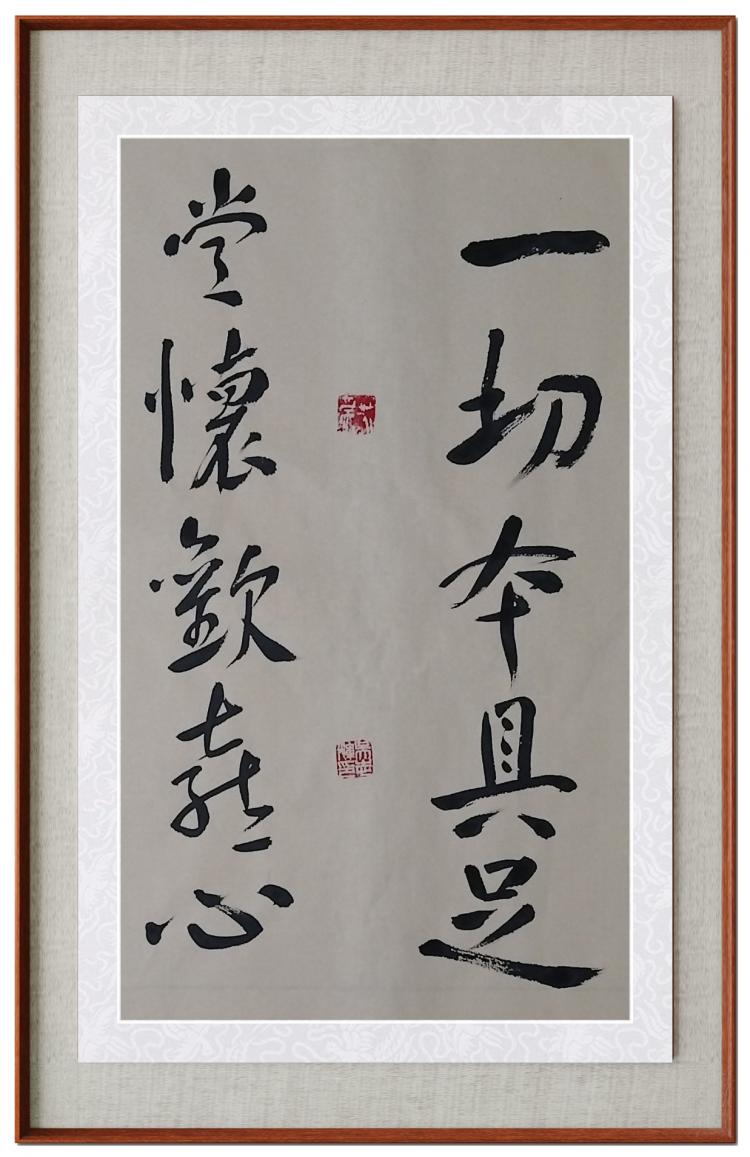 一切本具足
常懷歡喜心